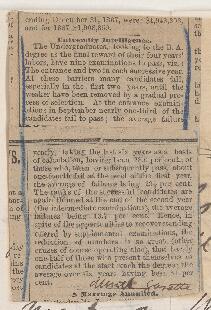 ending December 31, 1887, were
and for 1887
University Intelligence.
The Undergraduates, looking to the B.A.
degree as the final reward of their four years'
labors, have nine examinations to pass, viz.:
The entrance and two in each successive year.
At these barriers many candidates fall,
especially in the first two years, until the
weaker have been removed by a gradual pro-
cess of selection. At the entrance examin-
ations in September nearly one-third of the
candidates fail to pass; the average failures
yearly, taking the last six years as a basis
of calculation, having been per cent. of
those who, then or subsequently pass, about
one-fourth fail at the end of their first year,
the average of failures being per cent.
The ranks of the successful candidates are
again thinned at the end of the second year
(the intermediate examinations), the average
failures being per cent. Hence, in
spite of the opportunities to recover standing
offered by supplemental examinations, the
reduction of numbers is so great (other
causes of course operating too), that barely
one-half of those who present themselves as
candidates at the start reach the degree, the
average over six years having been per
cent. Gazette
A Marriage Annulled.